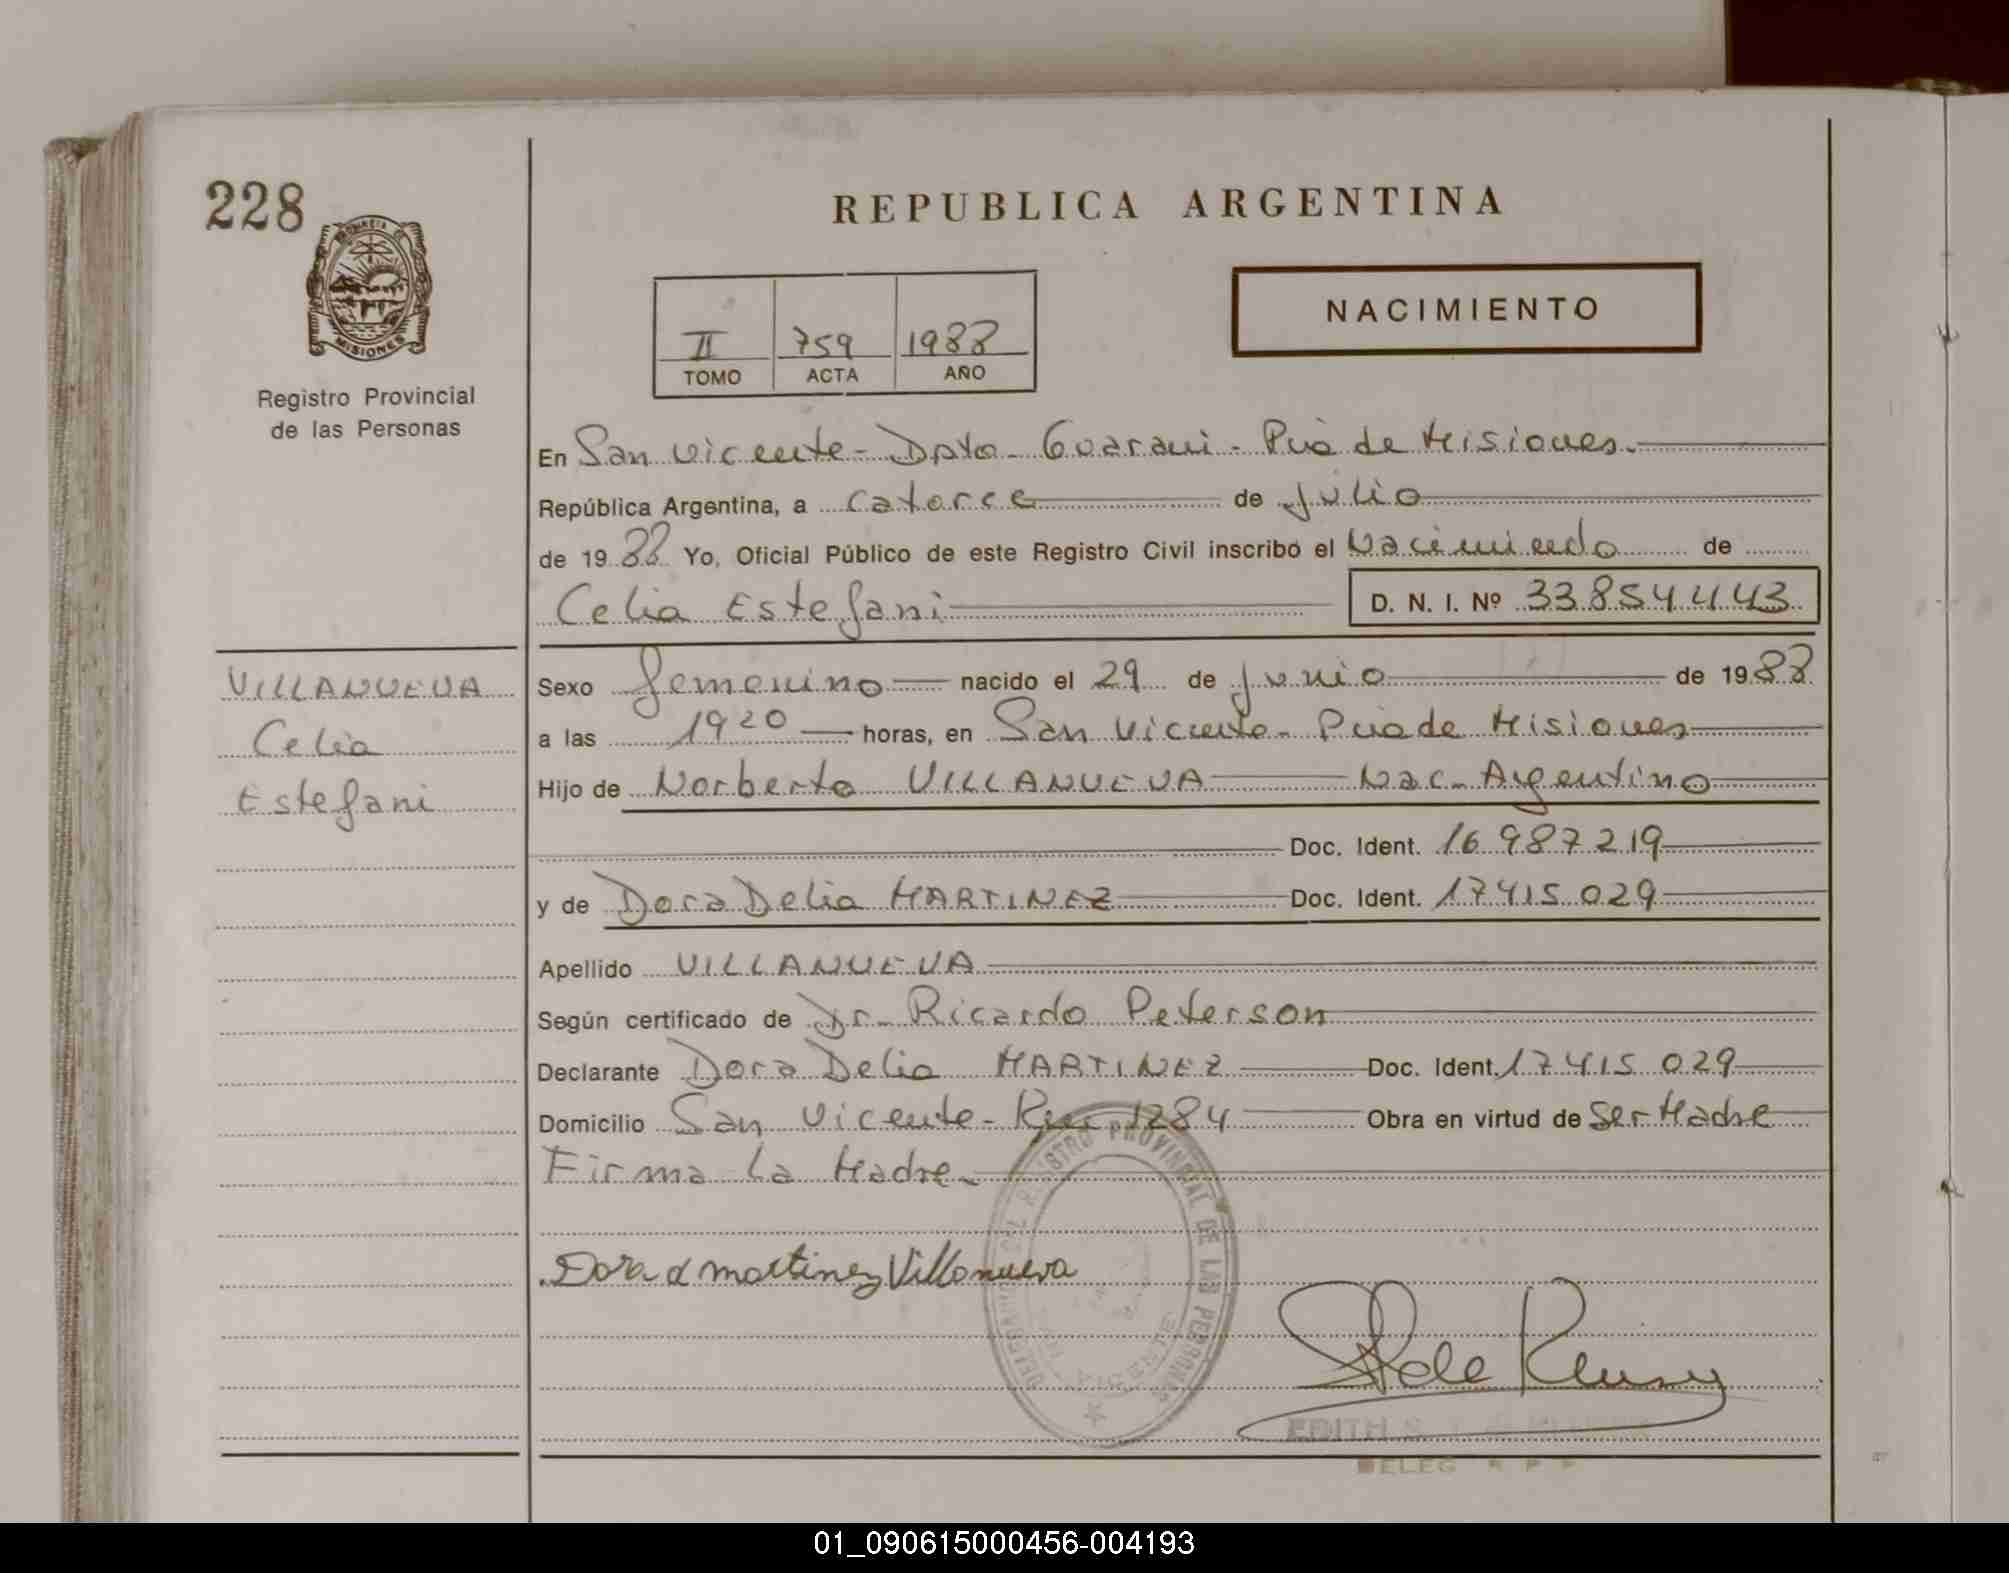 228
REPUBLICA ARGENTINA
PROVINCIA DE
MISIONES
Registro Provincial
de las Personas
II 759 1988
TOMO ACTA AÑO
NACIMIENTO
En San Vicente - Dpto - Guarani - Pcia de Misiones -
República Argentina, a catorce de Julio
de 1988 Yo, Oficial Público de este Registro Civil inscribo el Nacimiento de
Celia Estefani D. N. I. Nº 33.854.443
VILLANUEVA
Celia
Estefani
Sexo femenino nacido el 29 de Junio de 1988
a las 19 20 horas, en San Vicente - Pcia de Misiones
Hijo de Norberto VILLANUEVA Nac - Argentino
Doc. Ident. 16.987.219
y de Dora Delia MARTINEZ Doc. Ident. 17.415.029
Apellido VILLANUEVA
Según certificado de Dr - Ricardo Peterson
Declarante Dora Delia MARTINEZ Doc. Ident. 17.415.029
Domicilio San Vicente - Km 1284 Obra en virtud de Ser Madre
Firma la Madre -
Dora d martinez Villanueva
REGISTRO PROVINCIAL DE LAS PERSONAS
VICENTE
EDITH
DELEG
01_090615000456-004193